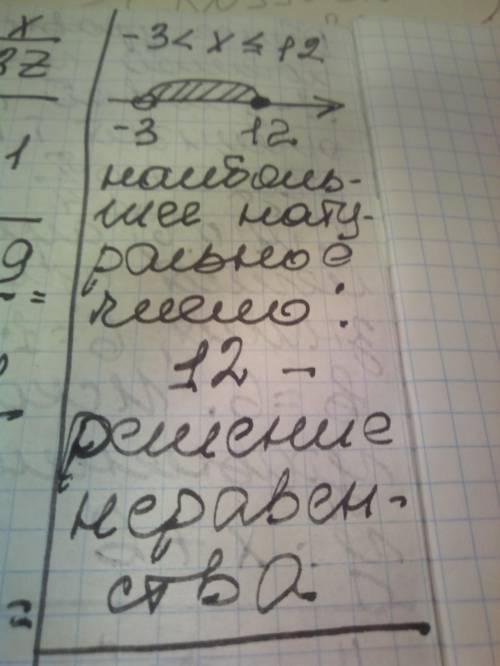 x
3z
1
9
-3 < x ≤ 12
-3 12
наиболь-
шее нату-
ральное
число:
12 -
решение
неравен-
ства